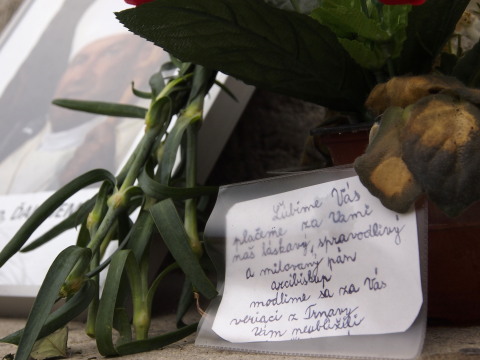 Ľúbime Vás
plačeme za Vami
náš láskavý, spravodlivý
a milovaný pán
arcibiskup
modlíme sa za Vás
veriaci z Trnavy
Vám neublížili